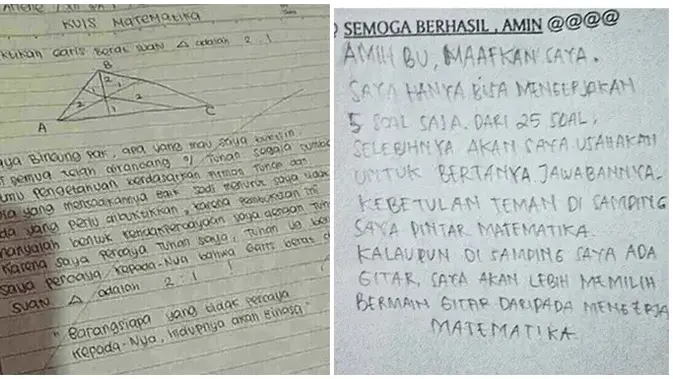 KUIS MATEMATIKA
ktikan Garis Berat suatu △ adalah 2 : 1
B
2
1
1
2
2
1
A
C
aya Bingung pak, apa yang mau saya buktiin
semua telah dirancang o/ Tuhan sebagai sumber
ilmu pengetahuan berdasarkan Firman Tuhan dan
Dia yang menciptakannya Baik Jadi menurut saya tidak
ada yang perlu dibuktikan, karena pembuktian ini
hanyalah bentuk kepercayaan saya dengan Tuhan
Karena saya percaya Tuhan saya, Tuhan
saya percaya kepada-Nya bahwa Garis berat
suatu △ adalah 2 : 1
"Barangsiapa yang tidak percaya
kepada-Nya, hidupnya akan Binasa"
SEMOGA BERHASIL, AMIN @@@@
AMIN BU, MAAFKAN SAYA.
SAYA HANYA BISA MENGERJAKAN
5 SOAL SAJA. DARI 25 SOAL,
SELEBIHNYA AKAN SAYA USAHAKAN
UNTUK BERTANYA JAWABANNYA.
KEBETULAN TEMAN DI SAMPING
SAYA PINTAR MATEMATIKA.
KALAUPUN DI SAMPING SAYA ADA
GITAR, SAYA AKAN LEBIH MEMILIH
BERMAIN GITAR DARIPADA MENGERJA
MATEMATIKA